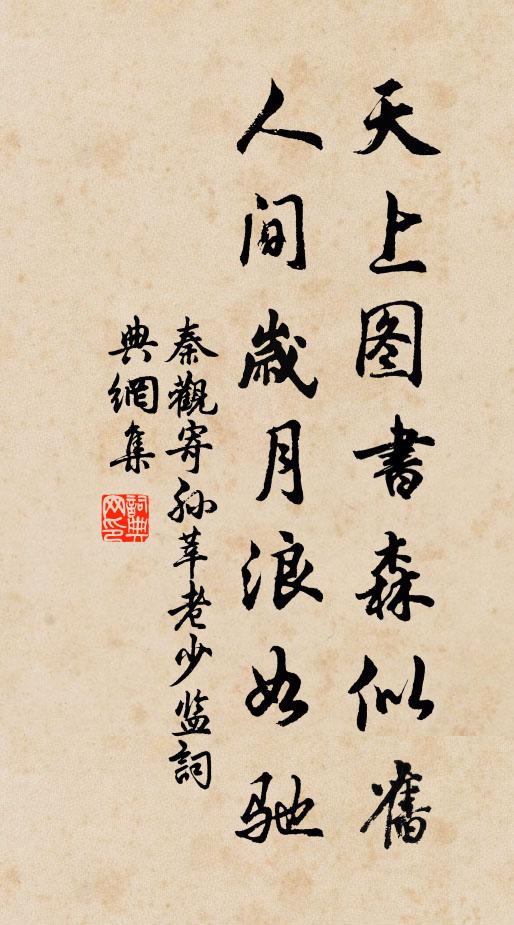 天上图書森似舊
人间歲月浪如馳
秦觀寄孙莘老少监詞
典網集
詞典網印